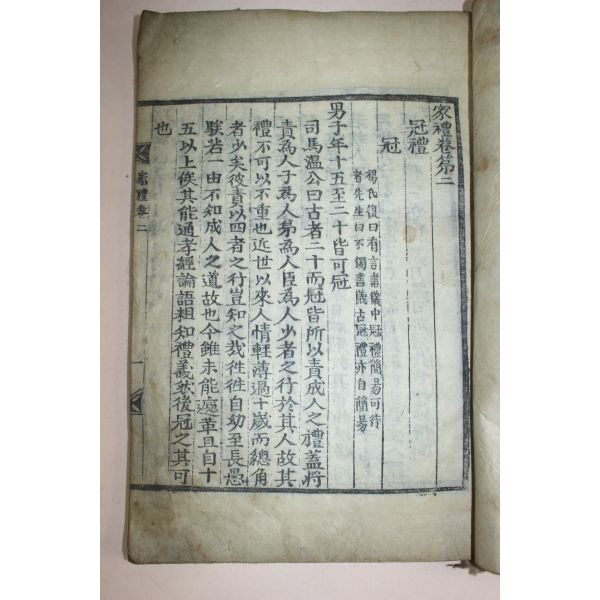 家禮卷第二
冠禮
冠
楊氏復曰有言書儀中冠禮簡易可行
者先生曰不獨書儀古冠禮亦自簡易
男子年十五至二十皆可冠
司馬溫公曰古者二十而冠皆所以責成人之禮蓋將
責爲人子爲人弟爲人臣爲人少者之行於其人故其
禮不可以不重也近世以來人情輕薄過十歲而總角
者少矣彼責以四者之行豈知之哉徃徃自幼至長愚
騃若一由不知成人之道故也今雖未能遽革且自十
五以上俟其能通孝經論語粗知禮義然後冠之其可
也
家禮卷二
一